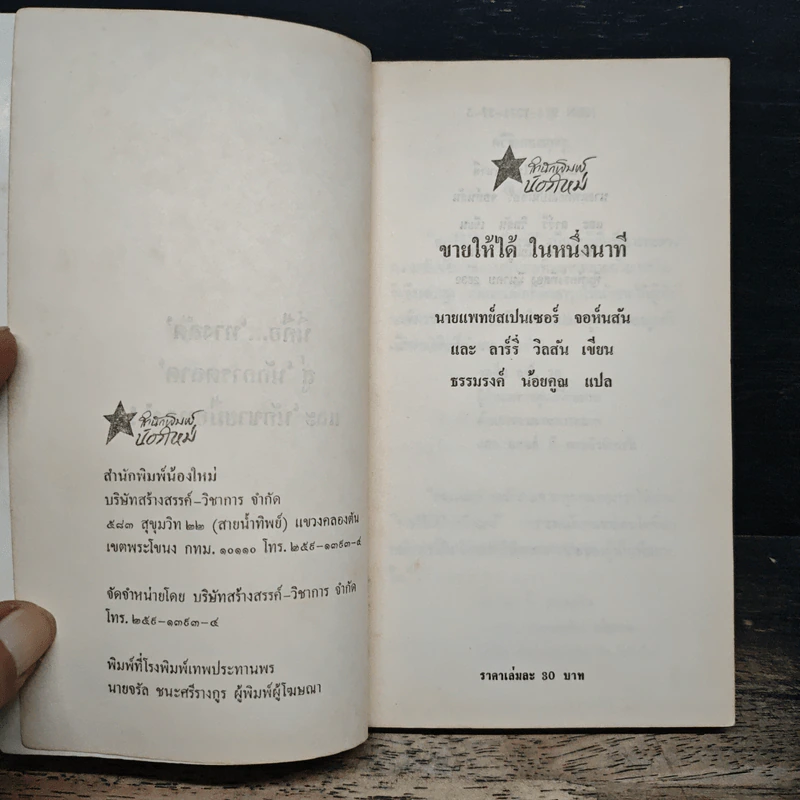 สำนักพิมพ์
น้องใหม่
สำนักพิมพ์น้องใหม่
บริษัทสร้างสรรค์-วิชาการ จำกัด
๕๘๓ สุขุมวิท ๒๒ (สายน้ำทิพย์) แขวงคลองตัน
เขตพระโขนง กทม. ๑๐๑๑๐ โทร. ๒๕๙-๑๓๙๓-๔
จัดจำหน่ายโดย บริษัทสร้างสรรค์-วิชาการ จำกัด
โทร. ๒๕๙-๑๓๙๓-๔
พิมพ์ที่โรงพิมพ์เทพประทานพร
นายจรัล ชนะศรีรางกูร ผู้พิมพ์ผู้โฆษณา
สำนักพิมพ์
น้องใหม่
ขายให้ได้ ในหนึ่งนาที
นายแพทย์สเปนเซอร์ จอห์นสัน
และ ลาร์รี่ วิลสัน เขียน
ธรรมรงค์ น้อยคูณ แปล
ราคาเล่มละ 30 บาท